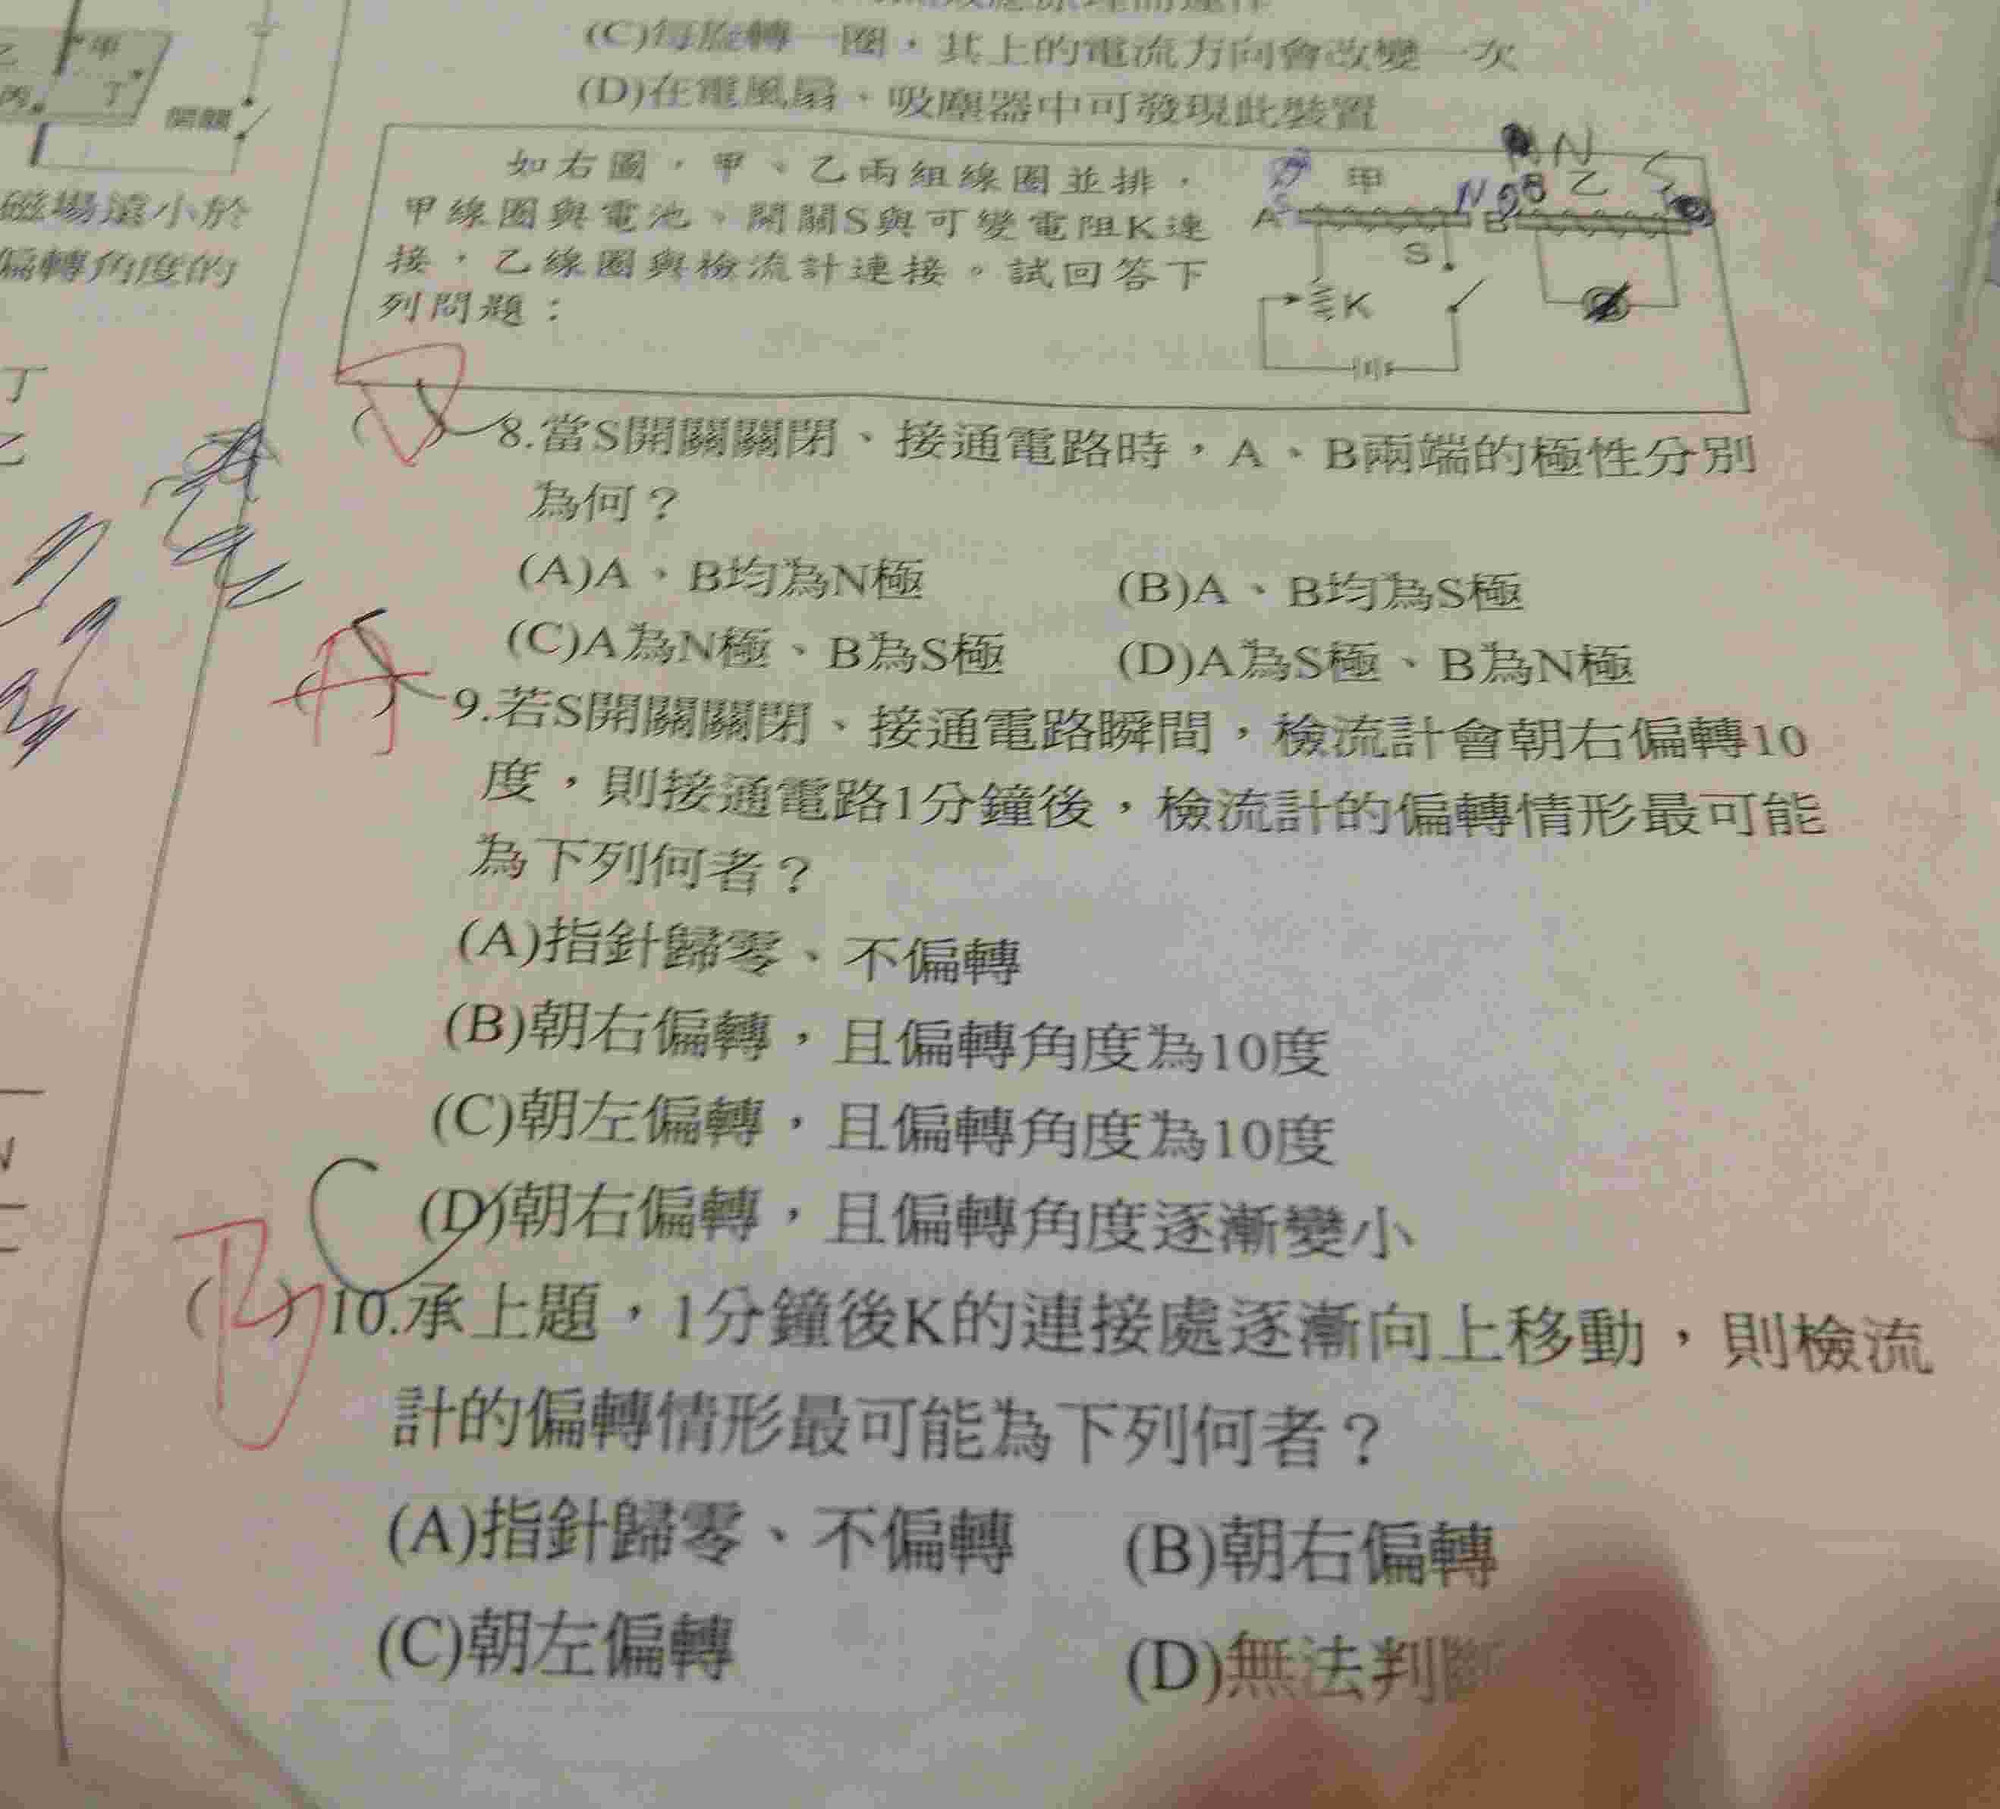 (C)每旋轉一圈，其上的電流方向會改變一次
(D)在電風扇、吸塵器中可發現此裝置
如右圖，甲、乙兩組線圈並排，
甲線圈與電池、開關S與可變電阻K連
接，乙線圈與檢流計連接。試回答下
列問題：
甲
乙
N
N
A
B
S
K
D
8.當S開關關閉、接通電路時，A、B兩端的極性分別
為何？
(A)A、B均為N極
(B)A、B均為S極
(C)A為N極、B為S極
(D)A為S極、B為N極
A
9.若S開關關閉、接通電路瞬間，檢流計會朝右偏轉10
度，則接通電路1分鐘後，檢流計的偏轉情形最可能
為下列何者？
(A)指針歸零、不偏轉
(B)朝右偏轉，且偏轉角度為10度
(C)朝左偏轉，且偏轉角度為10度
(D)朝右偏轉，且偏轉角度逐漸變小
B
C
10.承上題，1分鐘後K的連接處逐漸向上移動，則檢流
計的偏轉情形最可能為下列何者？
(A)指針歸零、不偏轉
(B)朝右偏轉
(C)朝左偏轉
(D)無法判斷
甲
丁
丙
開關
磁場遠小於
偏轉角度的
丁
乙